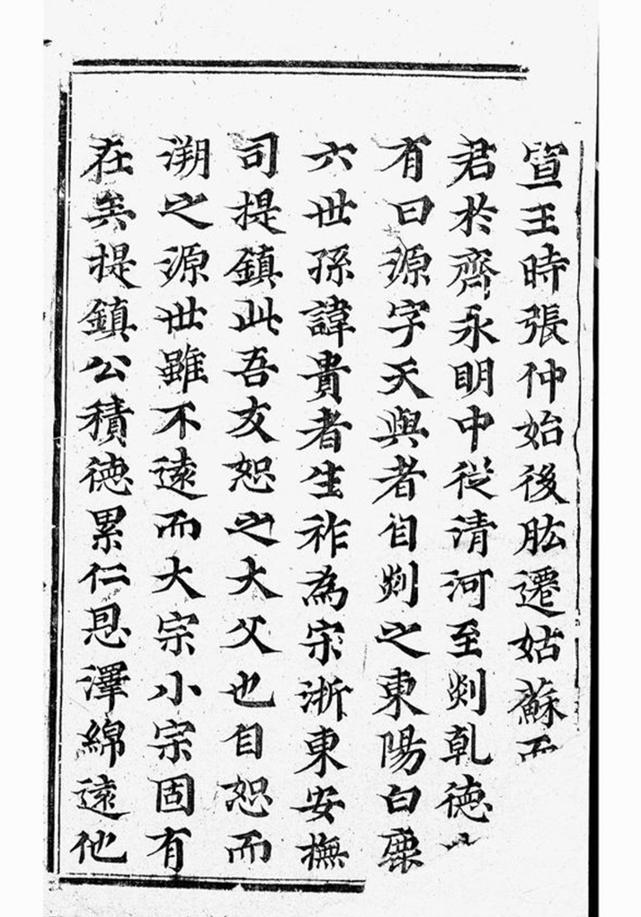 宣王時張仲始後肱遷姑蘇而
君於齊永明中從清河至剡乾德
有曰源字天與者自剡之東陽白鹿
六世孫諱貴者生祚為宗浙東安撫
司提鎮此吾友恕之大父也自恕而
溯之源世雖不遠而大宗小宗固有
在矣提鎮公積德累仁恩澤綿遠他